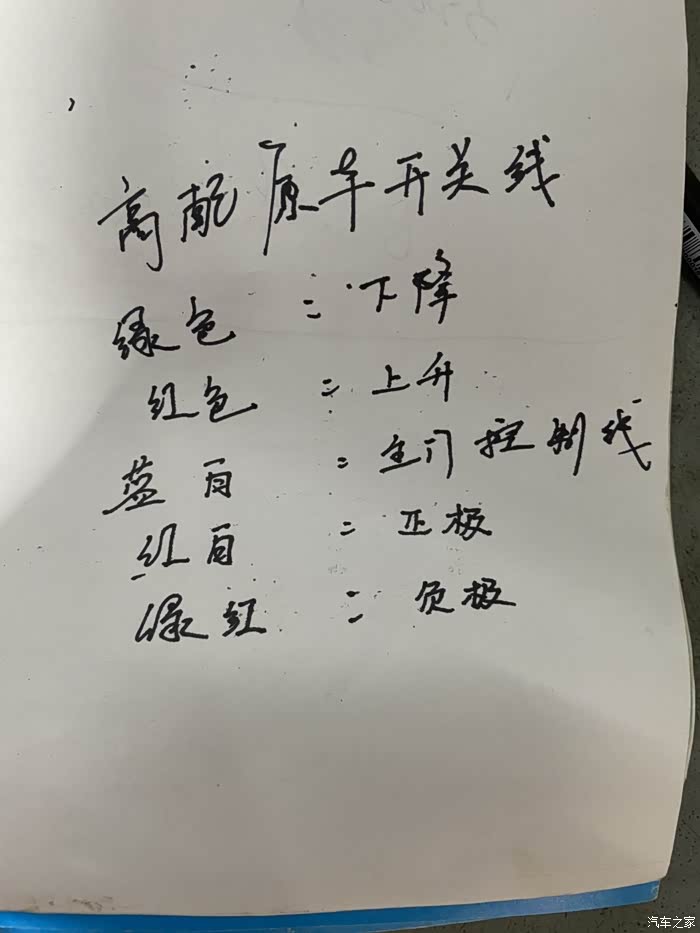 高配原车开关线
绿色 = 下降
红色 = 上升
蓝白 = 主门控制线
红白 = 正极
绿红 = 负极
汽车之家